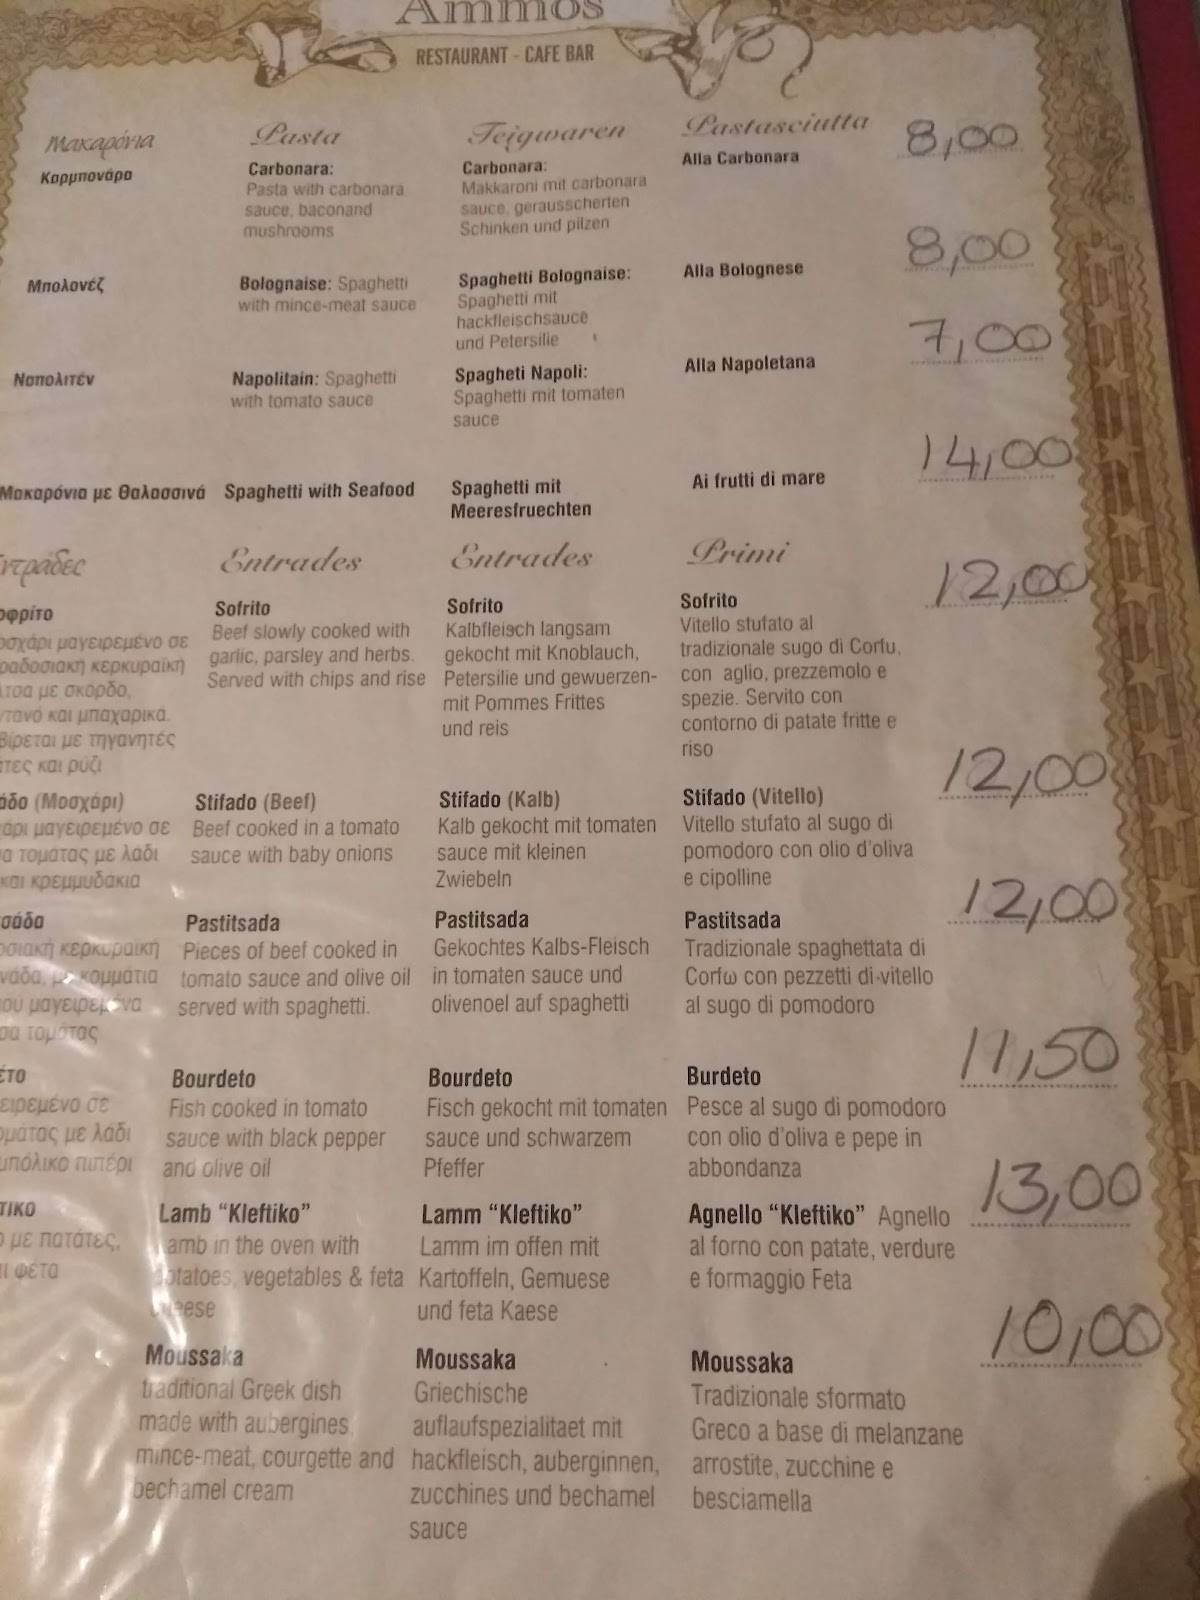 Ammos
RESTAURANT - CAFE BAR
Μακαρόνια Pasta Teigwaren Pastasciutta 8,00
Καρμπονάρα
Carbonara:
Pasta with carbonara
sauce, baconand
mushrooms
Carbonara:
Makkaroni mit carbonara
sauce, gerausscherten
Schinken und pilzen
Alla Carbonara
Μπολονέζ
Bolognaise: Spaghetti
with mince-meat sauce
Spaghetti Bolognaise:
Spaghetti mit
hackfleischsauce
und Petersilie
Alla Bolognese
8,00
Ναπολιτέν
Napolitain: Spaghetti
with tomato sauce
Spagheti Napoli:
Spaghetti mit tomaten
sauce
Alla Napoletana
7,00
Μακαρόνια με Θαλασσινά
Spaghetti with Seafood
Spaghetti mit
Meeresfruechten
Ai frutti di mare
14,00
Entrades Entrades Primi
μαγειρεμένο σε
κερκυραϊκή
με σκόρδο,
και μπαχαρικά.
με τηγανητές
και ρύζι
Sofrito
Beef slowly cooked with
garlic, parsley and herbs.
Served with chips and rise
Sofrito
Kalbfleisch langsam
gekocht mit Knoblauch,
Petersilie und gewuerzen-
mit Pommes Frittes
und reis
Sofrito
Vitello stufato al
tradizionale sugo di Corfu,
con aglio, prezzemolo e
spezie. Servito con
contorno di patate fritte e
riso
12,00
(Μοσχάρι)
μαγειρεμένο σε
τομάτας με λάδι
και κρεμμυδάκια
Stifado (Beef)
Beef cooked in a tomato
sauce with baby onions
Stifado (Kalb)
Kalb gekocht mit tomaten
sauce mit kleinen
Zwiebeln
Stifado (Vitello)
Vitello stufato al sugo di
pomodoro con olio d'oliva
e cipolline
12,00
κερκυραϊκή
κομμάτια
μαγειρεμένα
τομάτας
Pastitsada
Pieces of beef cooked in
tomato sauce and olive oil
served with spaghetti.
Pastitsada
Gekochtes Kalbs-Fleisch
in tomaten sauce und
olivenoel auf spaghetti
Pastitsada
Tradizionale spaghettata di
Corfω con pezzetti di vitello
al sugo di pomodoro
12,00
σε
με λάδι
πιπέρι
Bourdeto
Fish cooked in tomato
sauce with black pepper
and olive oil
Bourdeto
Fisch gekocht mit tomaten
sauce und schwarzem
Pfeffer
Burdeto
Pesce al sugo di pomodoro
con olio d'oliva e pepe in
abbondanza
11,50
με πατάτες,
φέτα
Lamb “Kleftiko”
in the oven with
vegetables & feta
Lamm “Kleftiko”
Lamm im offen mit
Kartoffeln, Gemuese
und feta Kaese
Agnello “Kleftiko” Agnello
al forno con patate, verdure
e formaggio Feta
13,00
Moussaka
traditional Greek dish
made with aubergines
mince-meat, courgette and
bechamel cream
Moussaka
Griechische
auflaufspezialitaet mit
hackfleisch, auberginnen,
zucchines und bechamel
sauce
Moussaka
Tradizionale sformato
Greco a base di melanzane
arrostite, zucchine e
besciamella
10,00